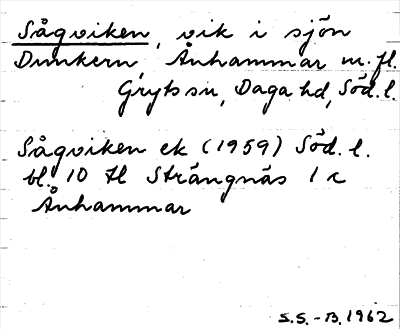 Sågviken, vik i sjön
Dunkern, Ånhammar m.fl.
Gryts sn, Daga hd, Söd.l.
Sågviken ek (1959) Söd. l.
bl. 10 H Strängnäs 1 c
Ånhammar
S.S. - B. 1962